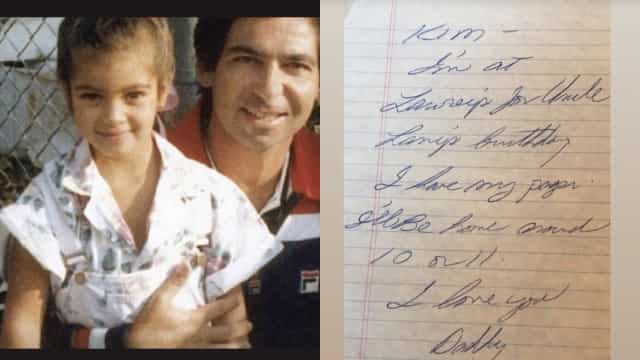 Kim -
I'm at
for Uncle
birthday
I have my pager.
I'll Be home around
10 or 11.
I love you
Daddy
FILA